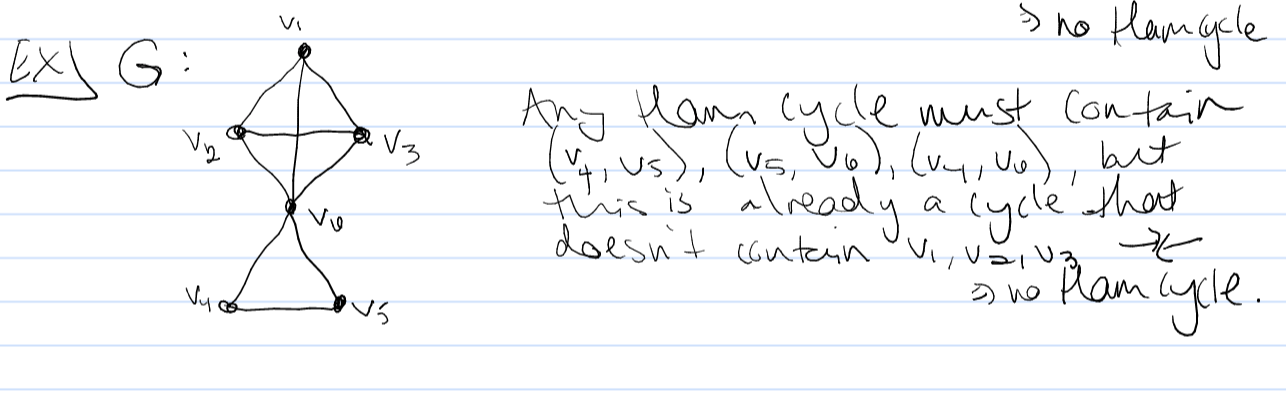 ⇒ no Ham cycle
EX) G:
v1
v2
v3
v6
v4
v5
Any Ham cycle must contain
(v4, v5), (v5, v6), (v4, v6), but
this is already a cycle that
doesn't contain v1, v2, v3
⇒ no Ham cycle.